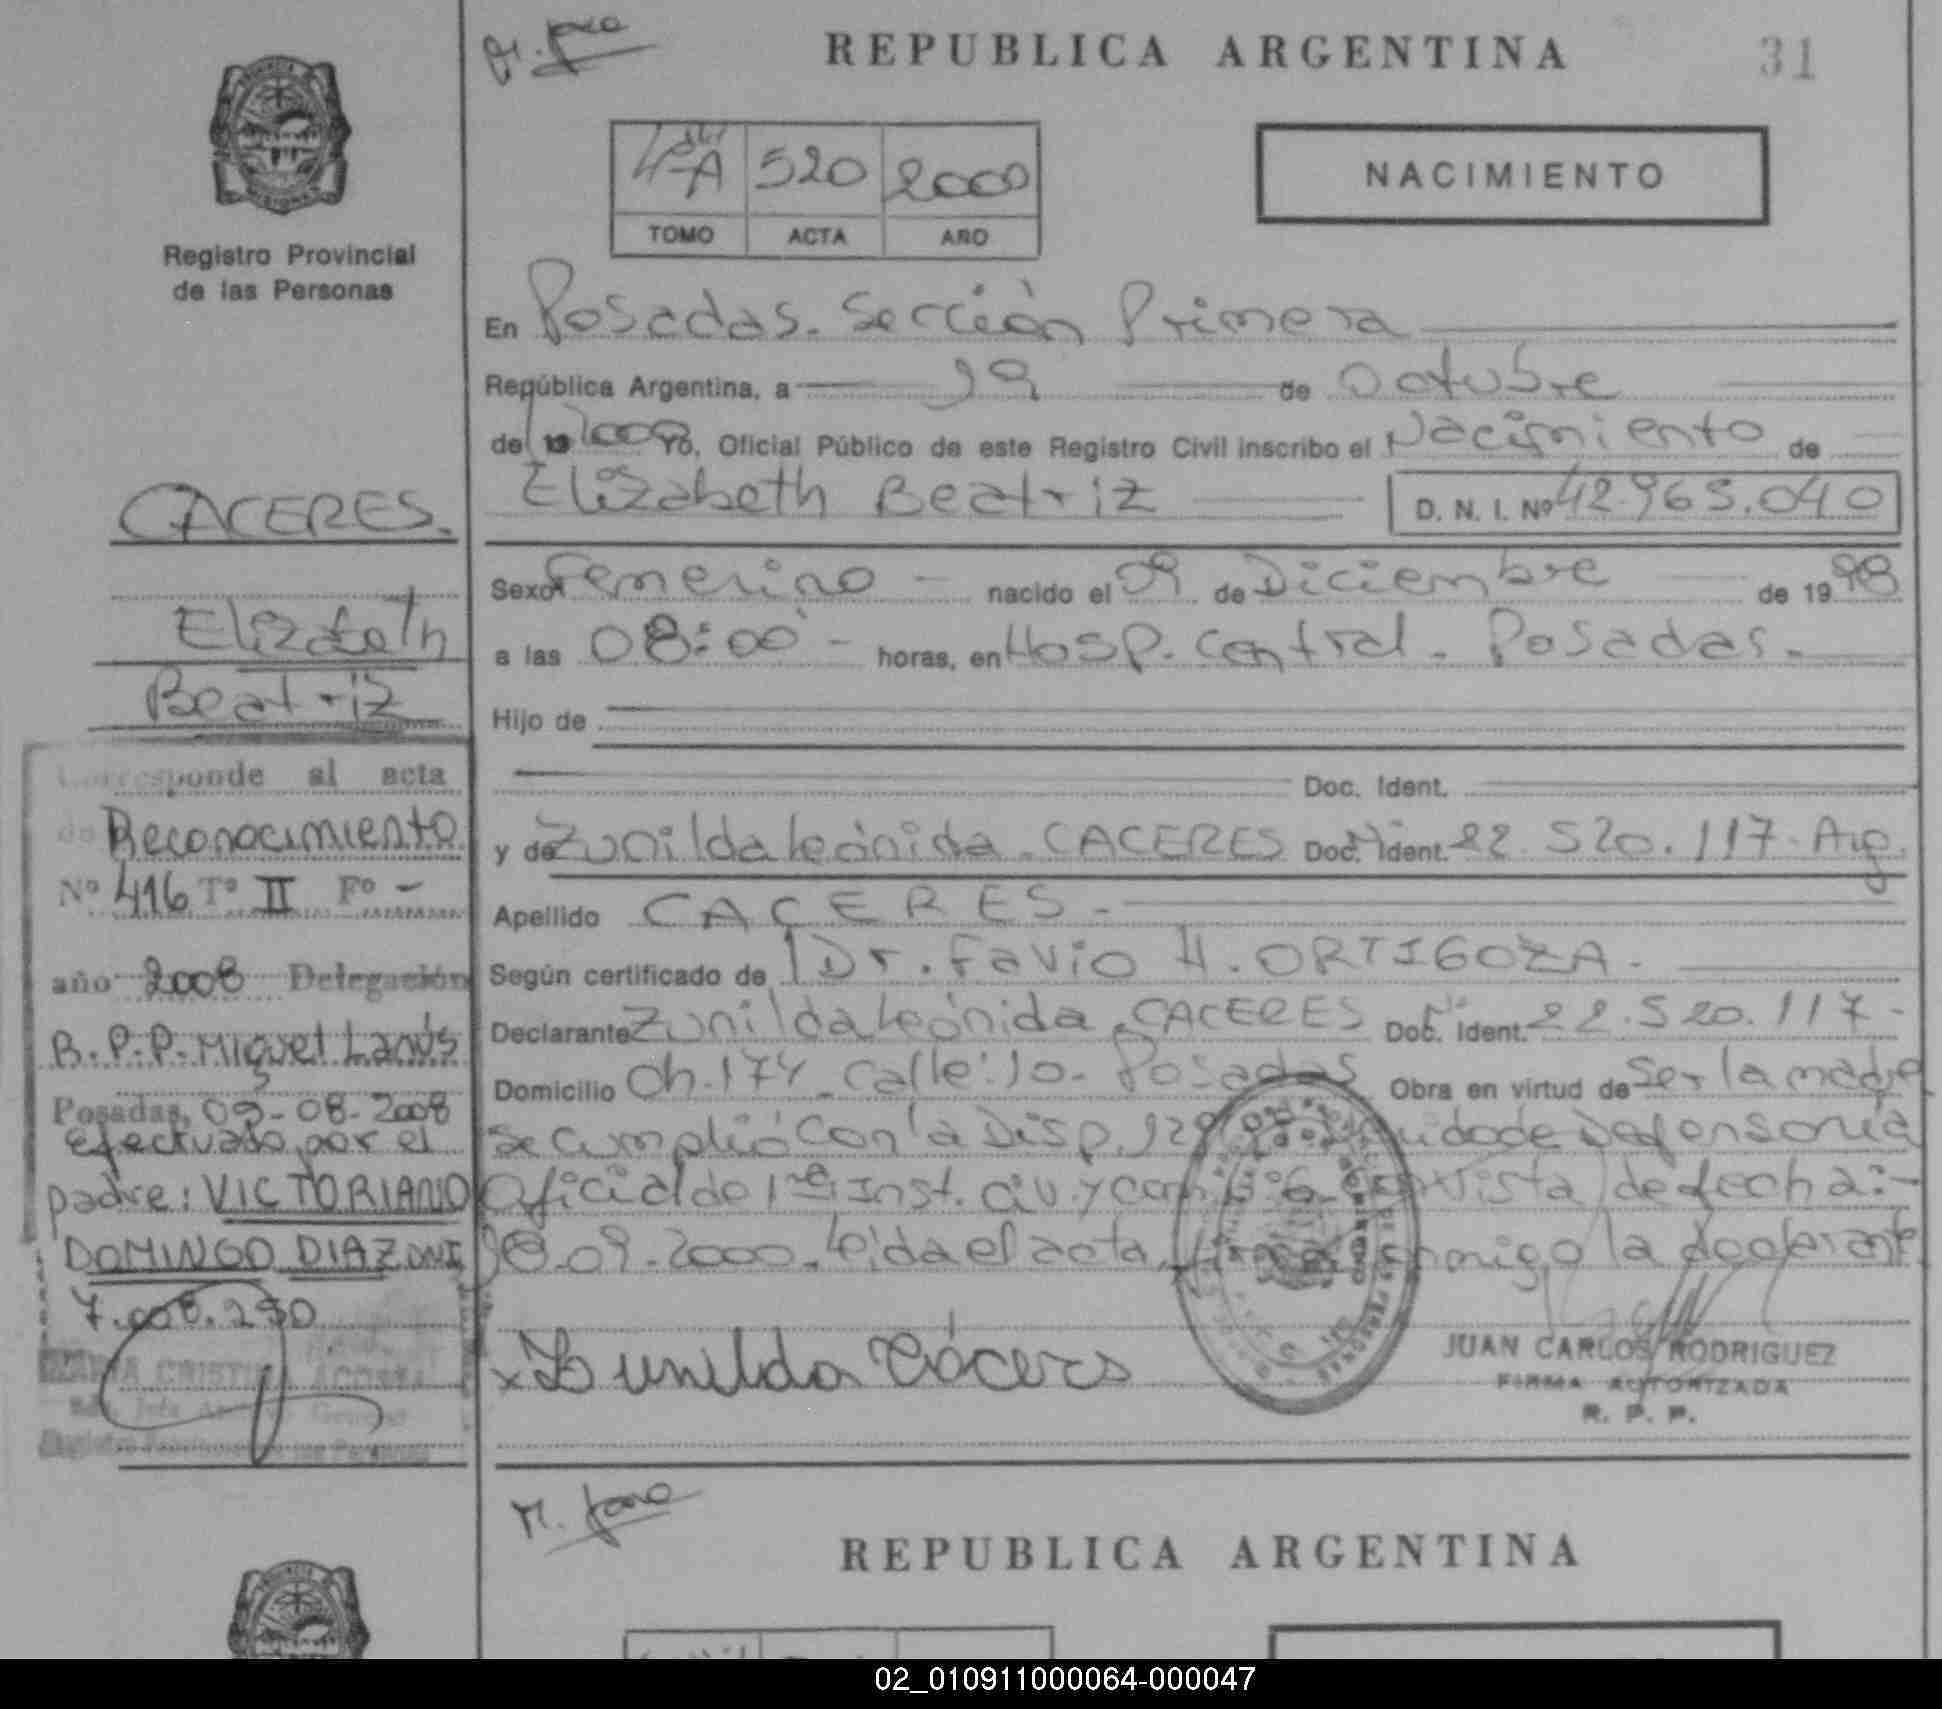 REPUBLICA ARGENTINA
31
NACIMIENTO
520 2000
TOMO ACTA AÑO
Registro Provincial
de las Personas
En Posadas. Sección Primera
República Argentina, a 19 de Octubre
de 19 2000 Yo, Oficial Público de este Registro Civil inscribo el Nacimiento de
Elizabeth Beatriz D. N. I. Nº 42.963.040
CACERES.
Elizabeth
Beatriz
Sexo Femenino - nacido el 09 de Diciembre de 1998
a las 08:00 - horas, en Hosp. Central. Posadas.
Hijo de
Doc. Ident.
y de Zunilda Leónida CACERES Doc. Ident. 22.520.117. Arg.
Apellido CACERES.-
Según certificado de Dr. Favio H. ORTIGOZA.
Declarante Zunilda Leónida CACERES Doc. Ident. 22.520.117.-
Domicilio Ch. 174 Calle: 10. Posadas Obra en virtud de ser la madre
se cumplió con la Disp. Defensoría
Oficial de 1ra Inst. Civ. y Com. vista de fecha:-
.09.2000. Leída el acta, conmigo la declarante
x Zunilda Cácers
JUAN CARLOS RODRIGUEZ
FIRMA AUTORIZADA
R. P. P.
Corresponde al acta
de Reconocimiento
Nº 416 Tº II Fº -
año 2008 Delegación
R.P.P. Miguel Lanús
Posadas, 09-08-2008
efectuado por el
padre: VICTORIANO
DOMINGO DIAZ DNI
MARIA CRISTINA ACOSTA
REPUBLICA ARGENTINA
02_010911000064-000047